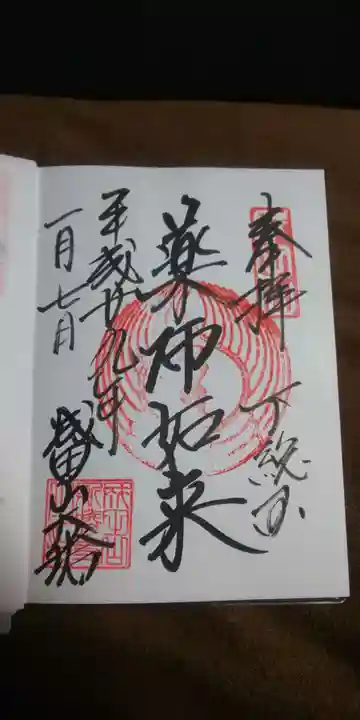 奉拝
下総国
薬師如来
平成廿九年
一月七日
成田山